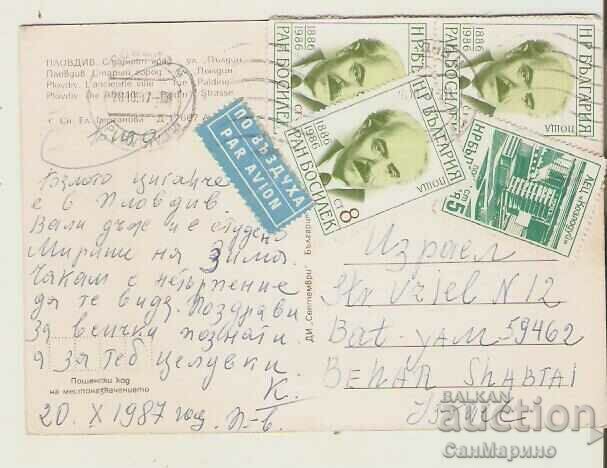 ПЛОВДИВ. Старият град
Пловдив Старый город
Plovdiv. L'ancienne ville
Plovdiv. Die Altstadt Strasse
ПО ВЪЗДУХА
PAR AVION
1886
1986
РАН БОСИЛЕК
НР БЪЛГАРИЯ
1886
1986
РАН БОСИЛЕК
ПОЩА
НР БЪЛГАРИЯ
СТ 8
1886
1986
РАН БОСИЛЕК
ПОЩА
НР БЪЛ
поща
ст 5
Бялото циганче
е в Пловдив.
Вали дъжд и е студено
Мирише на Зима.
Чакам с нетърпение
да те видя. Поздрави
за всички познати
а за теб целувки.
К.
20. X 1987 год. П-в.
Пощенски код
на местоназначението
ДИ „Септември“
Израел
Str Vriel N 12
Bat-yAM 59462
BEHAR ShABTAI
BALKAN
auction
СанМарино